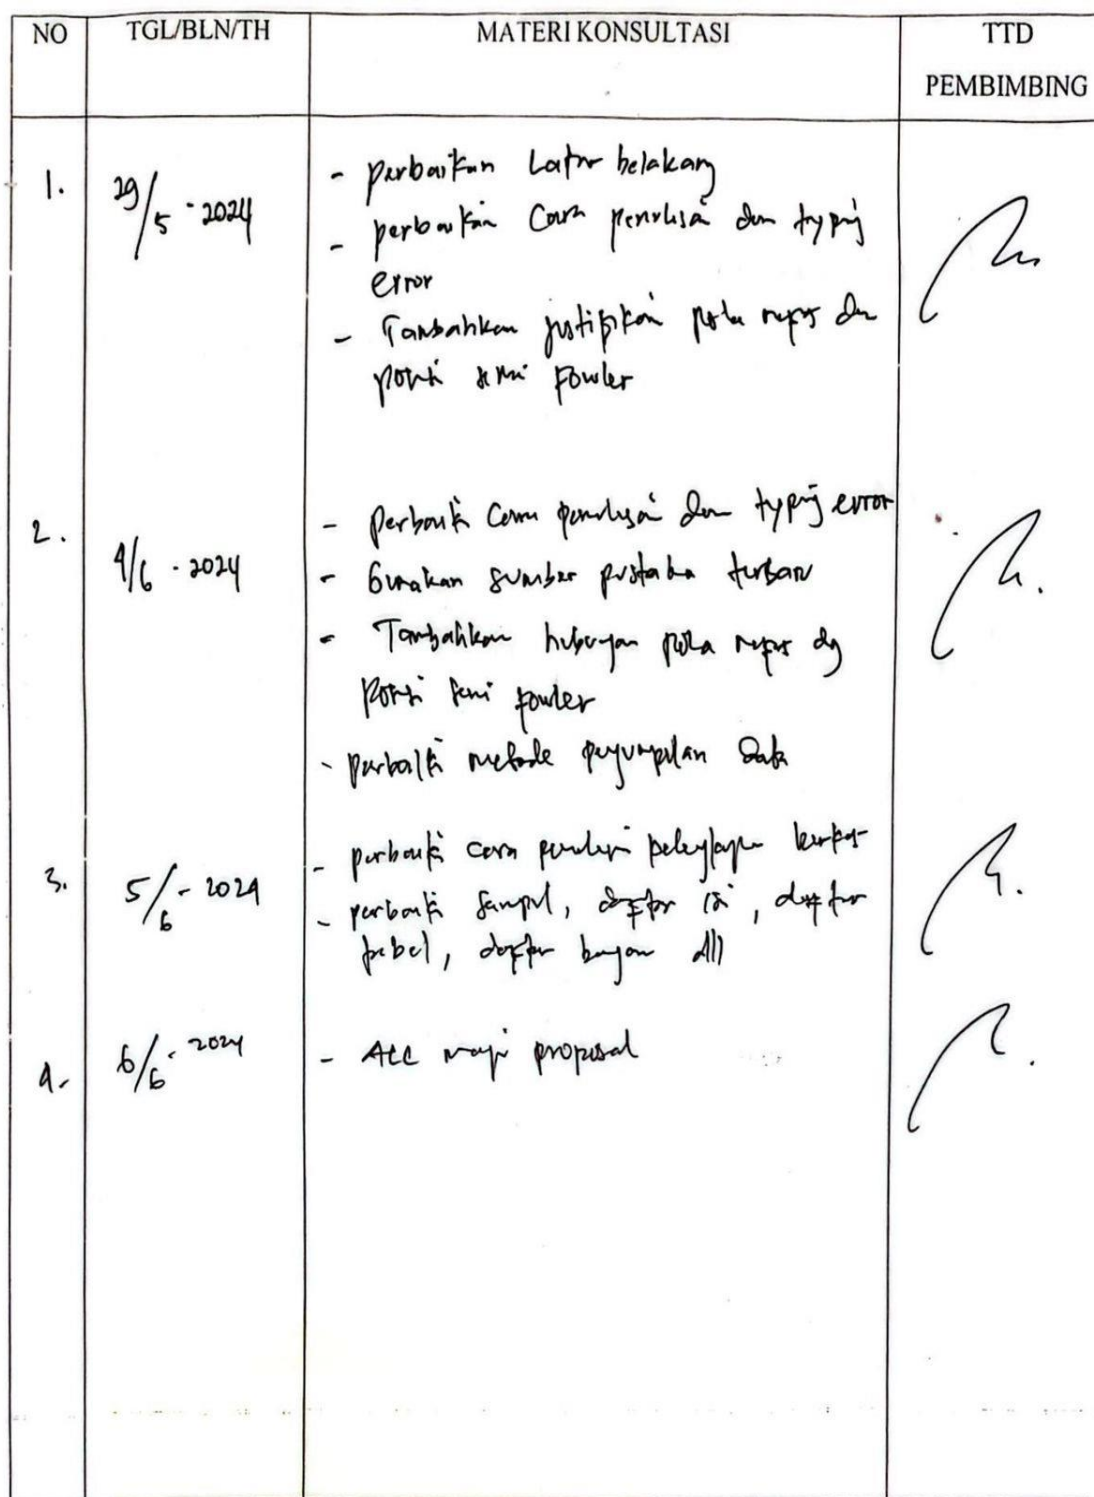 NO TGL/BLN/TH MATERI KONSULTASI TTD
PEMBIMBING
1. 29/5 - 2024
- perbaikan Latar belakang
- perbaikan Cara penulisan dan typing
error
- Tambahkan justifikasi pola nafas dan
posisi semi Fowler
2. 4/6 - 2024
- Perbaiki Cara penulisan dan typing error
- Gunakan sumber pustaka terbaru
- Tambahkan hubungan pola nafas dg
Posisi semi fowler
- perbaiki metode pengumpulan Data
3. 5/6 - 2024
- perbaiki cara
- perbaiki sampul, daftar isi, daftar
tabel, daftar bagan dll
4. 6/6 - 2024
- ACC maju proposal